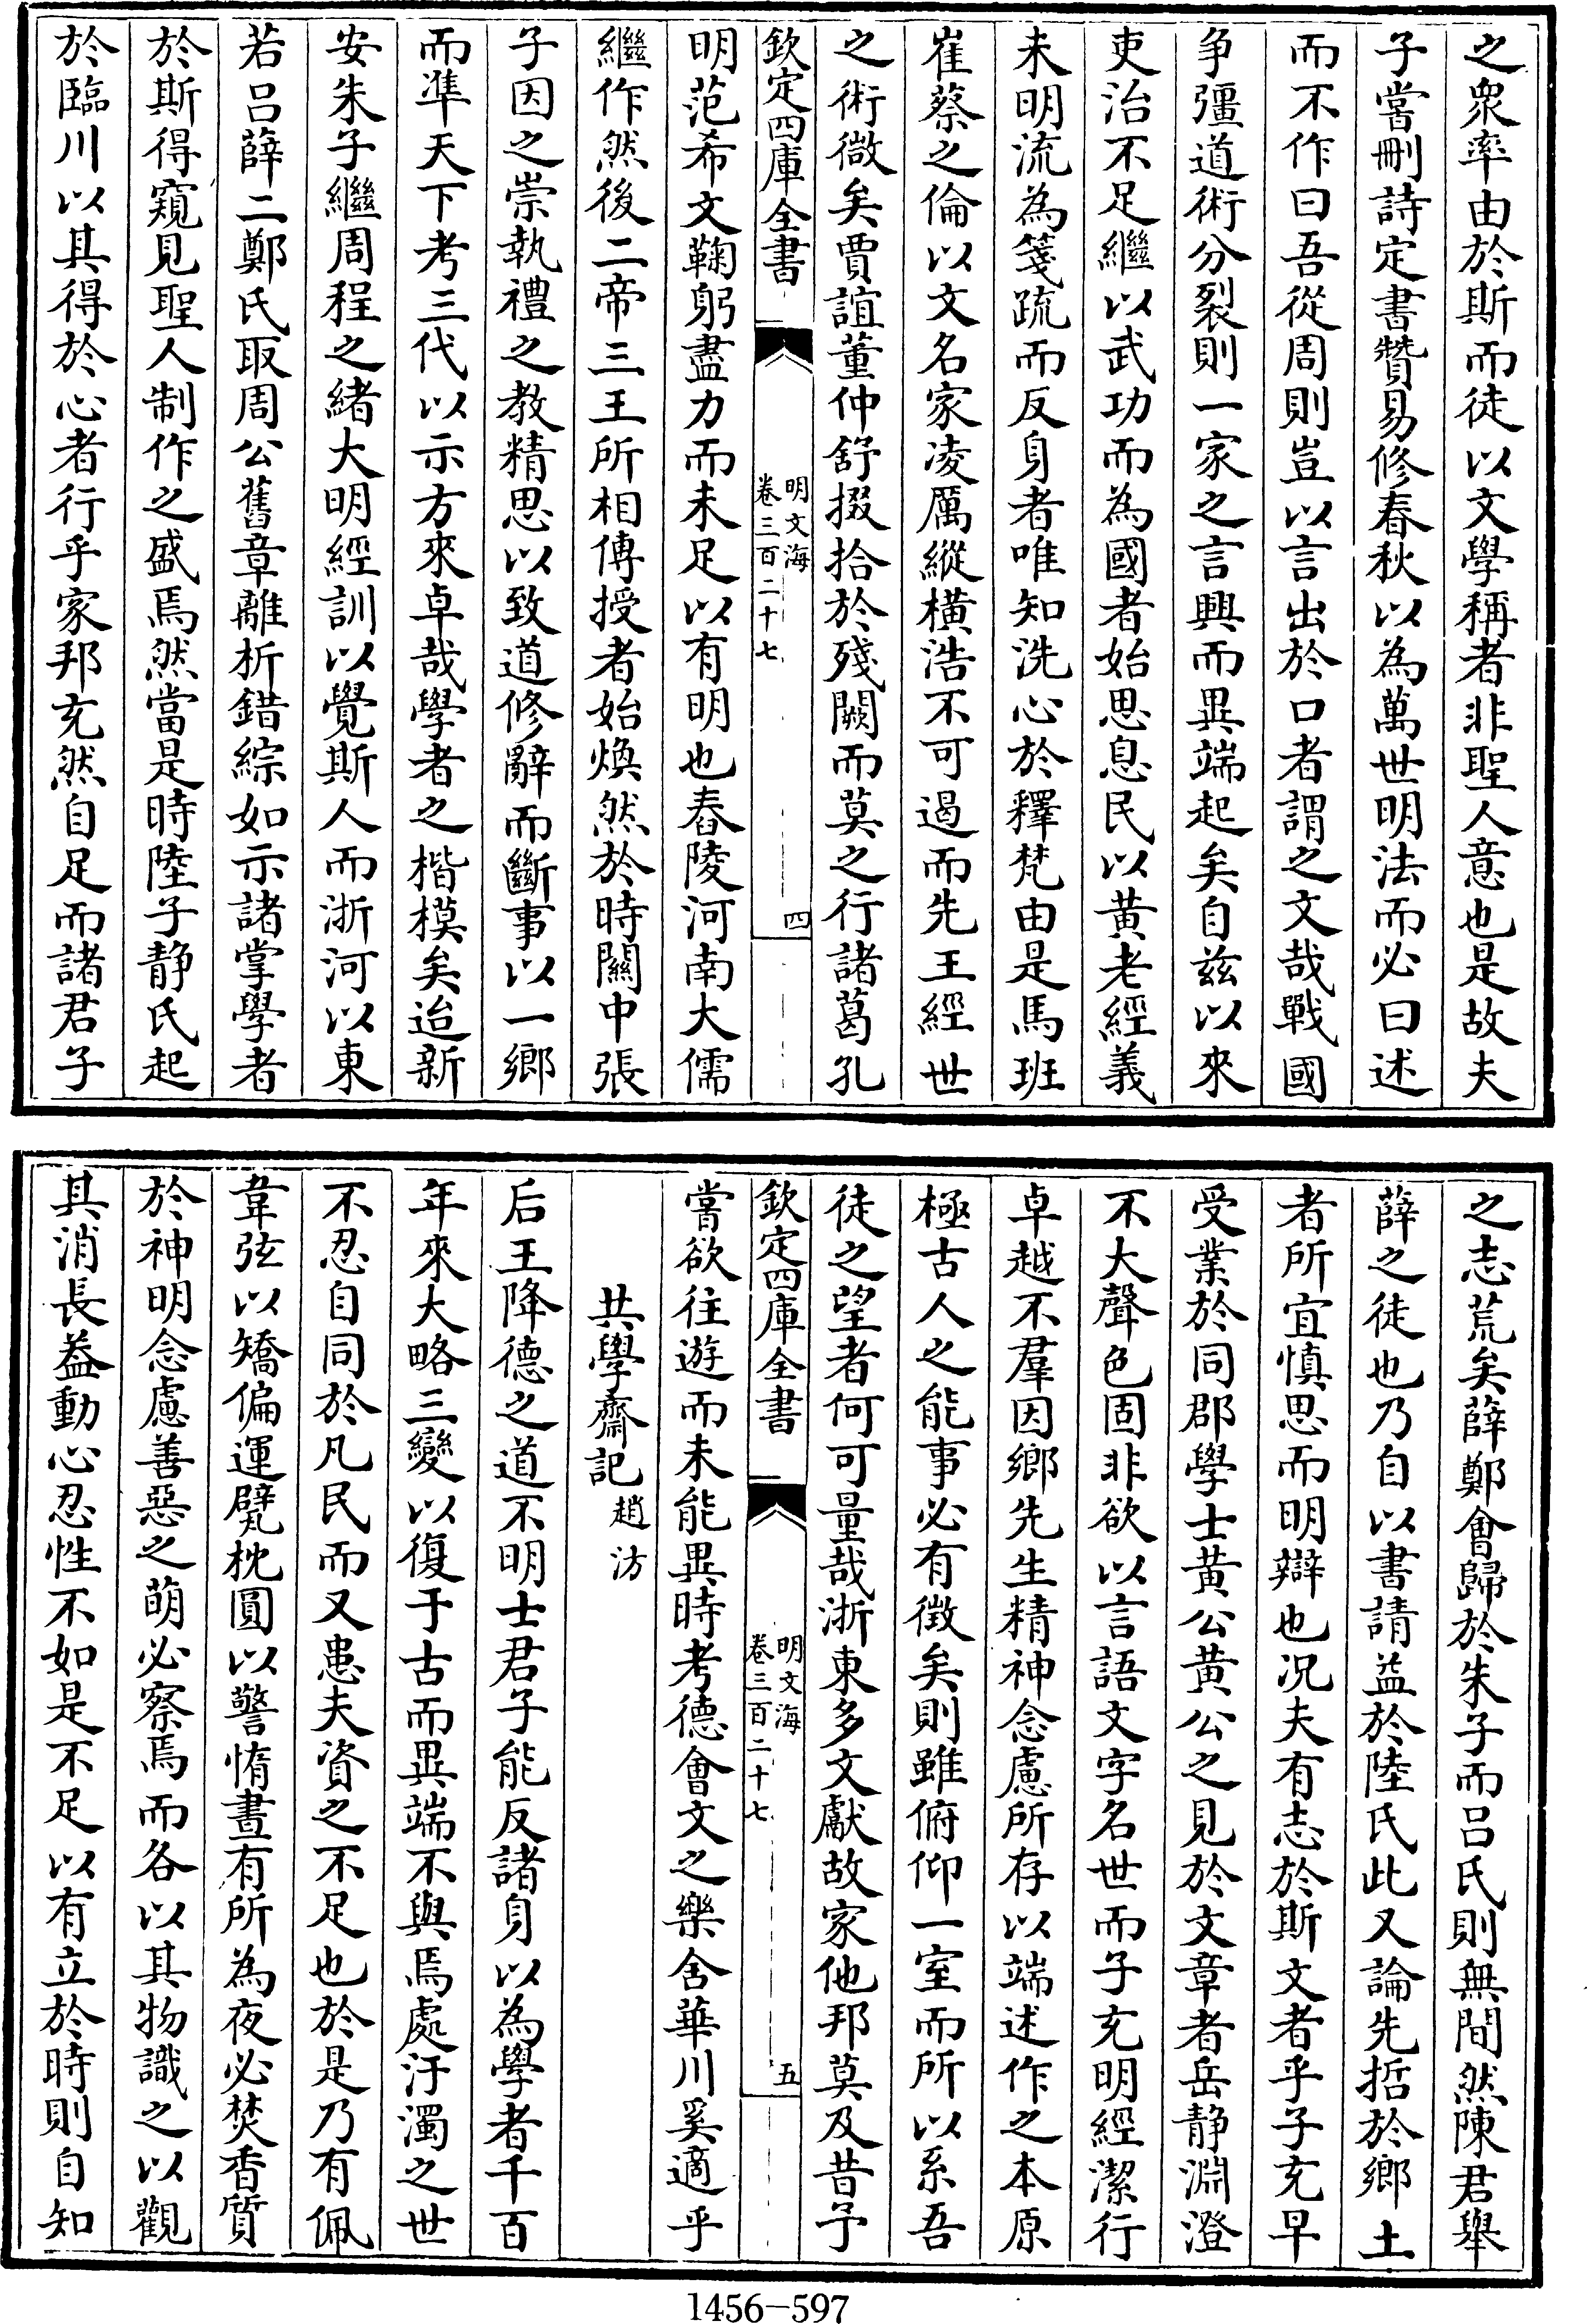 之衆率由於斯而徒以文學稱者非聖人意也是故夫
子嘗刪詩定書贊易修春秋以為萬世明法而必曰述
而不作曰吾從周則豈以言出於口者謂之文哉戰國
争彊道術分裂則一家之言興而異端起矣自兹以來
吏治不足繼以武功而為國者始思息民以黄老經義
未明流為箋疏而反身者唯知洗心於釋梵由是馬班
崔蔡之倫以文名家凌厲縱横浩不可遏而先王經世
之術微矣賈誼董仲舒掇拾於殘闕而莫之行諸葛孔
欽定四庫全書
明文海
卷三百二十七
四
明范希文鞠躬盡力而未足以有明也舂陵河南大儒
繼作然後二帝三王所相傳授者始煥然於時關中張
子因之崇執禮之教精思以致道修辭而斷事以一鄉
而準天下考三代以示方來卓哉學者之楷模矣迨新
安朱子繼周程之緒大明經訓以覺斯人而浙河以東
若吕薛二鄭氏取周公舊章離析錯綜如示諸掌學者
於斯得窺見聖人制作之盛焉然當是時陸子静氏起
於臨川以其得於心者行乎家邦充然自足而諸君子
之志荒矣薛鄭會歸於朱子而吕氏則無間然陳君舉
薛之徒也乃自以書請益於陸氏此又論先哲於鄉土
者所宜慎思而明辯也况夫有志於斯文者乎子充早
受業於同郡學士黄公黄公之見於文章者岳静淵澄
不大聲色固非欲以言語文字名世而子充明經潔行
卓越不羣因鄉先生精神念慮所存以端述作之本原
極古人之能事必有徴矣則雖俯仰一室而所以系吾
徒之望者何可量哉浙東多文獻故家他邦莫及昔予
欽定四庫全書
明文海
卷三百二十七
五
嘗欲往遊而未能異時考德會文之樂舍華川奚適乎
共學齋記 趙汸
后王降德之道不明士君子能反諸身以為學者千百
年來大略三變以復于古而異端不與焉處汙濁之世
不忍自同於凡民而又患夫資之不足也於是乃有佩
韋弦以矯偏運甓枕圓以警惰晝有所為夜必焚香質
於神明念慮善惡之萌必察焉而各以其物識之以觀
其消長益動心忍性不如是不足以有立於時則自知
1456-597